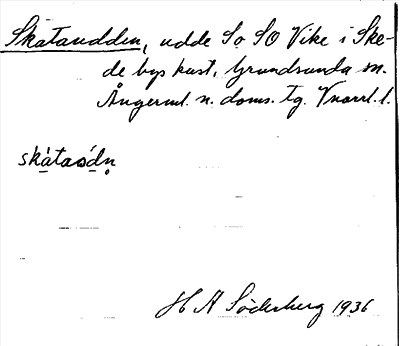 Skataudden, udde So SO Vike i Ske-
de bys kust, Grundsunda sn.
Ångerml. n. doms. tg. Vnorrl. l.
skàtaódn̥
H A Söderberg 1936